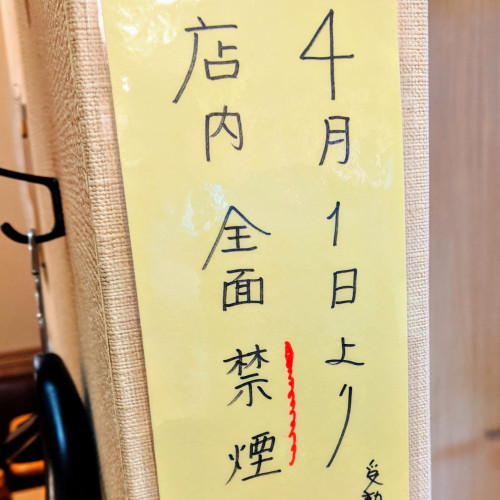 4月1日より
店内全面禁煙
受動